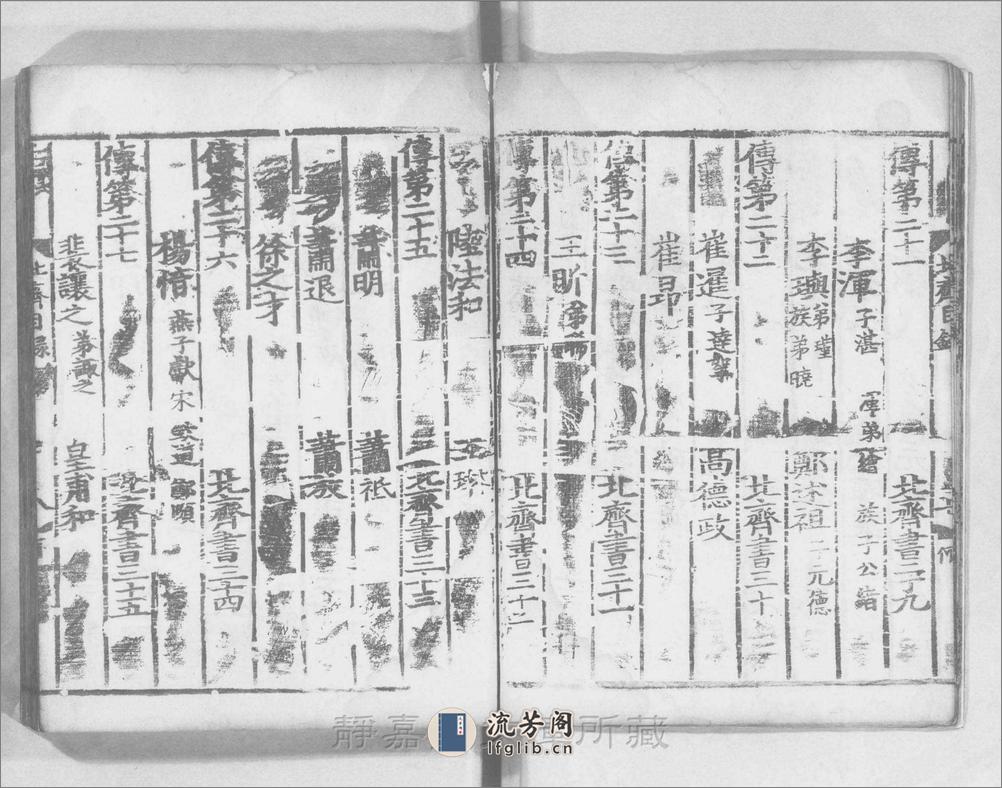 傳第二十一 北齊書二十九
李渾 子湛 渾弟繪 族子公緒
李璵 弟瑾 族弟曉 鄭述祖 子元德
傳第二十二 北齊書三十
崔暹 子達拏 高德政
崔昂
傳第二十三 北齊書三十一
王昕 弟晞
傳第二十四 北齊書三十二
陸法和 王琳
傳第二十五 北齊書三十三
蕭明 蕭祗
蕭退 蕭放
徐之才
傳第二十六 北齊書三十四
楊愔 燕子獻 宋欽道 鄭頤
傳第二十七 北齊書三十五
裴讓之 弟諏之 皇甫和
靜嘉 所藏
流芳阁
lfglib.cn